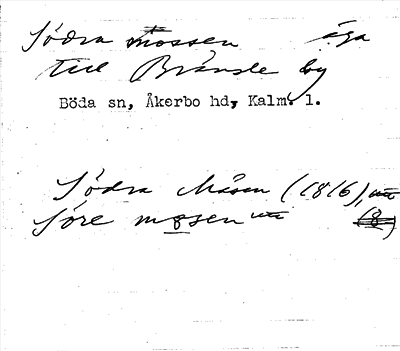 Södra mossen äga
till Bränsle by
Böda sn, Åkerbo hd, Kalm. l.
Södra Måsen (1816),
Söre mosen